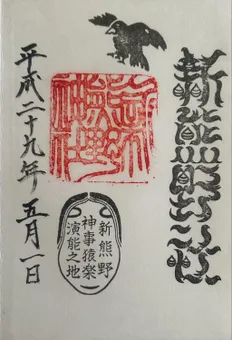 新熊野神社
新熊野
神事猿楽
演能之地
平成二十九年 五月一日